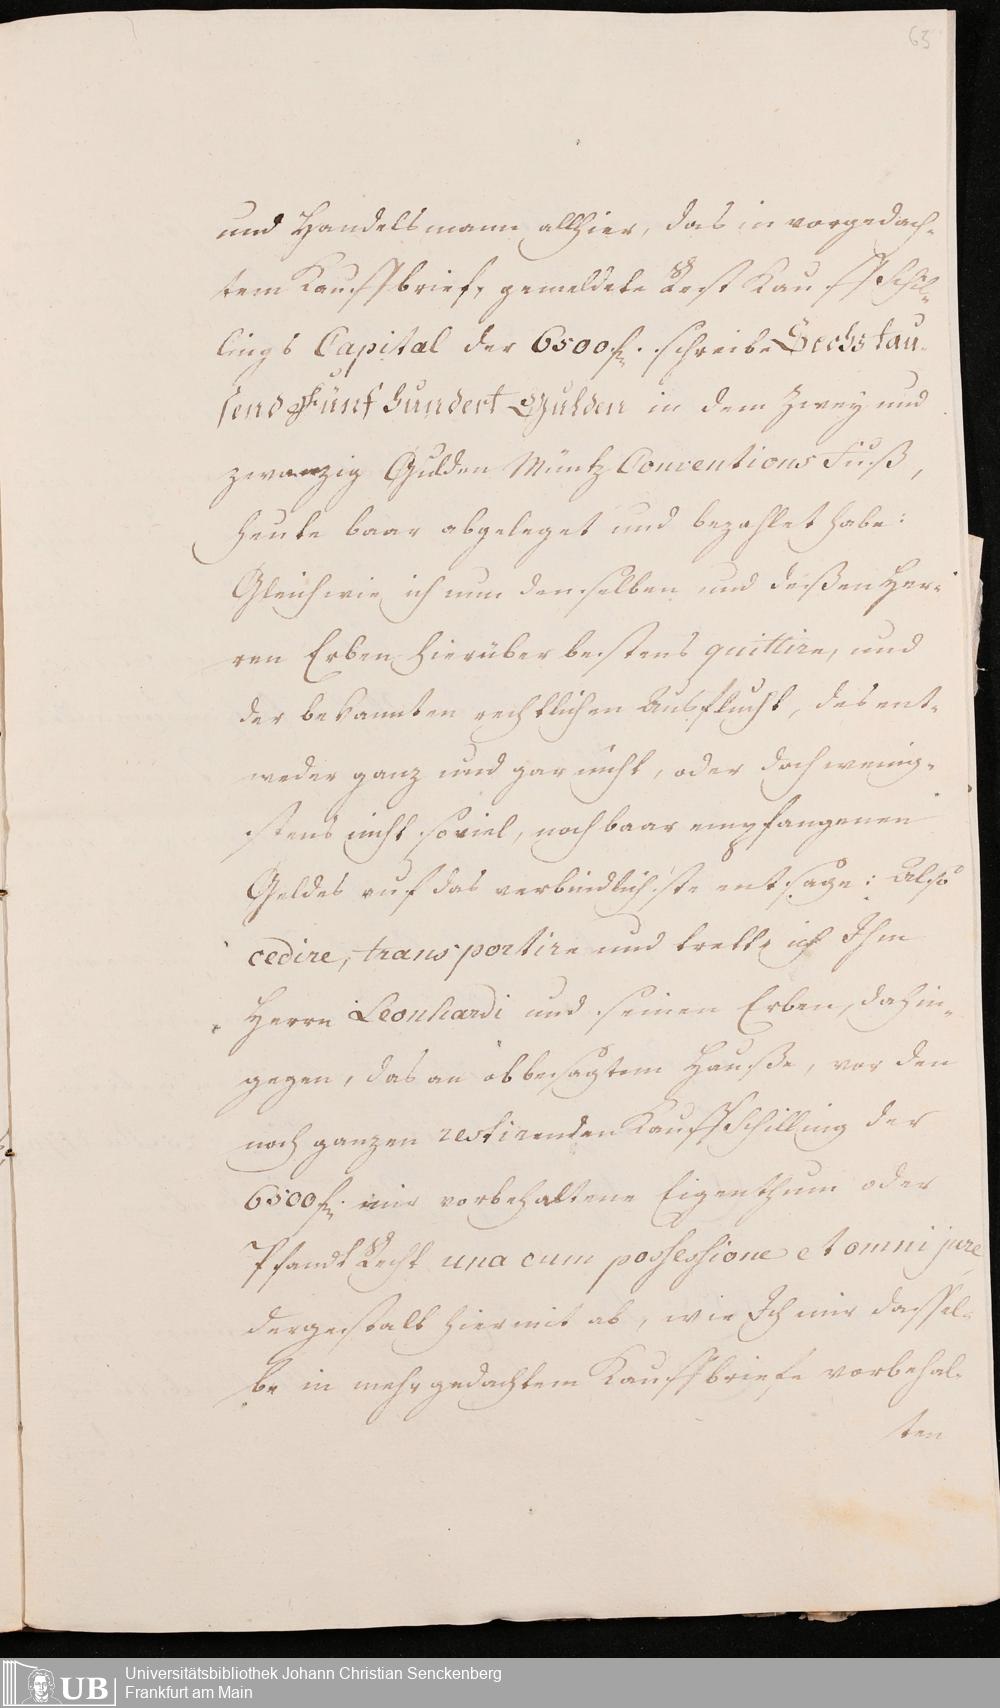 63
und Handelsmann allhier, das in vorgedach-
tem Kauffbrief, gemeldete Rest Kauffschil-
lings Capital der 6500 fl. schreibe Sechstau-
send Fünfhundert Gulden in dem Zwey und
zwanzig Gulden Müntz Conventions Fuß,
heute baar abgeleget und bezahlet habe:
Gleichwie ich nun demselben und deßen Her-
ren Erben hierüber bestens quittire, und
der bekannten rechtlichen Ausflucht, des ent-
weder ganz und gar nicht, oder doch wenig-
stens nicht soviel, noch baar empfangenen
Geldes auf das verbindlichste entsage: Also
cedire, transportire und trette ich Ihm
Herrn Leonhardi und seinen Erben, dahin-
gegen, das an obbesagtem Hauße, vor den
noch ganzen restirenden Kauffschilling der
6500 fl. mir vorbehaltene Eigenthum oder
Pfandt Recht una cum possessione et omni jure
dergestalt hiermit ab, wie Ich mir dassel-
be in mehrgedachtem Kauffbriefe vorbehal-
ten
UB
Universitätsbibliothek Johann Christian Senckenberg
Frankfurt am Main